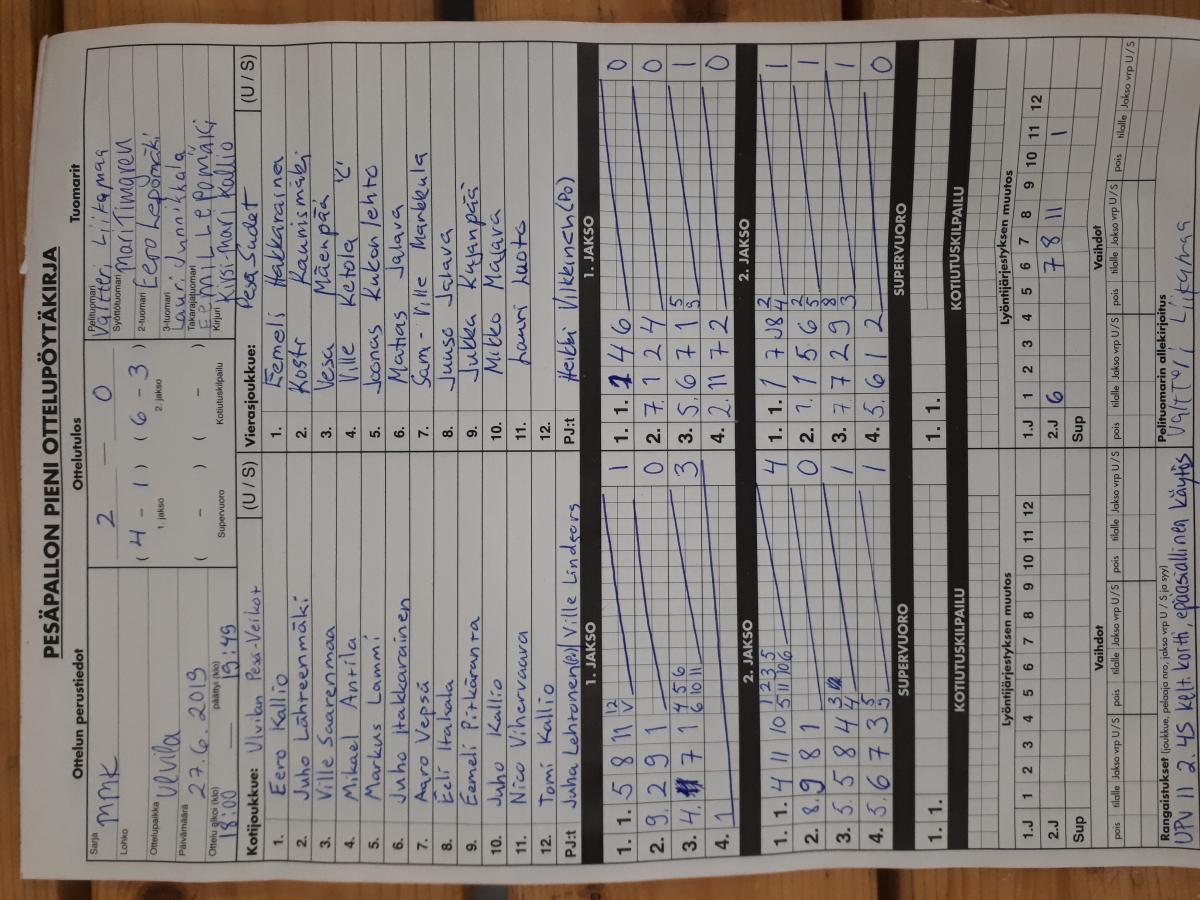 PESÄPALLON PIENI OTTELUPÖYTÄKIRJA
Ottelun perustiedot
Sarja
MMK
Lohko
Ottelupaikka
Ulvila
Päivämäärä
27.6.2019
Ottelu alkoi (klo) päättyi (klo)
18:00 — 19:49
Ottelutulos
2 — 0
( 4 - 1 ) ( 6 - 3 )
1. jakso 2. jakso
( - ) ( - )
Supervuoro Kotiutuskilpailu
Tuomarit
Pelituomari
Valtteri Liikamaa
Syöttötuomari
Mari Timgren
2-tuomari
Eero Lepomäki
3-tuomari
Lauri Junnikkala
Takarajatuomari
EEMIL LEPOMÄKI
Kirjuri
Kirsi-mari Kallio
Kotijoukkue: Ulvilan Pesä-Veikot (U / S)
1. Eero Kallio
2. Juho Lähteenmäki
3. Ville Saarenmaa
4. Mikael Anttila
5. Markus Lammi
6. Juho Hakkarainen
7. Aaro Vepsä
8. Eeli Itahala
9. Eemeli Pitkäranta
10. Juho Kallio
11. Nico Vihervaara
12. Tomi Kallio
PJ:t Juha Lehtonen(PJ) Ville Lindfors
1. JAKSO
1. 1. 5 8 11 1
2. 9. 2 9 1 0
3. 4. 7 1 3
4. 1
2. JAKSO
1. 1. 4 11 10 4
2. 8. 9 8 1 0
3. 5. 5 8 4 1
4. 5. 6 7 3 1
SUPERVUORO
1. 1.
KOTIUTUSKILPAILU
Lyöntijärjestyksen muutos
1.J 1 2 3 4 5 6 7 8 9 10 11 12
2.J
Sup
Vaihdot
pois tilalle Jakso vrp U / S pois tilalle Jakso vrp U / S pois tilalle Jakso vrp U / S
Vierasjoukkue: Pesä Sudet (U / S)
1. Eemeli Hakkarainen
2. Kosti Kaunismäki
3. Vesa Mäenpää
4. Ville Ketola "C"
5. Joonas Kukonlehto
6. Matias Jalava
7. Sam-Ville Markkula
8. Juuso Jalava
9. Jukka Kajanpää
10. Mikko Majava
11. Lauri Luoto
12.
PJ:t Heikki Vilkkinen (PJ)
1. JAKSO
1. 1. 1 4 6 0
2. 7. 1 2 4 0
3. 5. 6 7 1 1
4. 2. 11 7 2 0
2. JAKSO
1. 1. 1 7 8 1
2. 1. 1 5 6 1
3. 7. 7 2 9 1
4. 5. 6 1 2 0
SUPERVUORO
1. 1.
KOTIUTUSKILPAILU
Lyöntijärjestyksen muutos
1.J 1 2 3 4 5 6 7 8 9 10 11 12
2.J 6 7 8 11 1
Sup
Vaihdot
pois tilalle Jakso vrp U / S pois tilalle Jakso vrp U / S pois tilalle Jakso vrp U / S
Rangaistukset (joukkue, pelaaja nro, jakso vrp U / S ja syy)
UPV 11 2.4S kelt. kortti, epäasiallinen käytös
Pelituomarin allekirjoitus
Valtteri Liikamaa